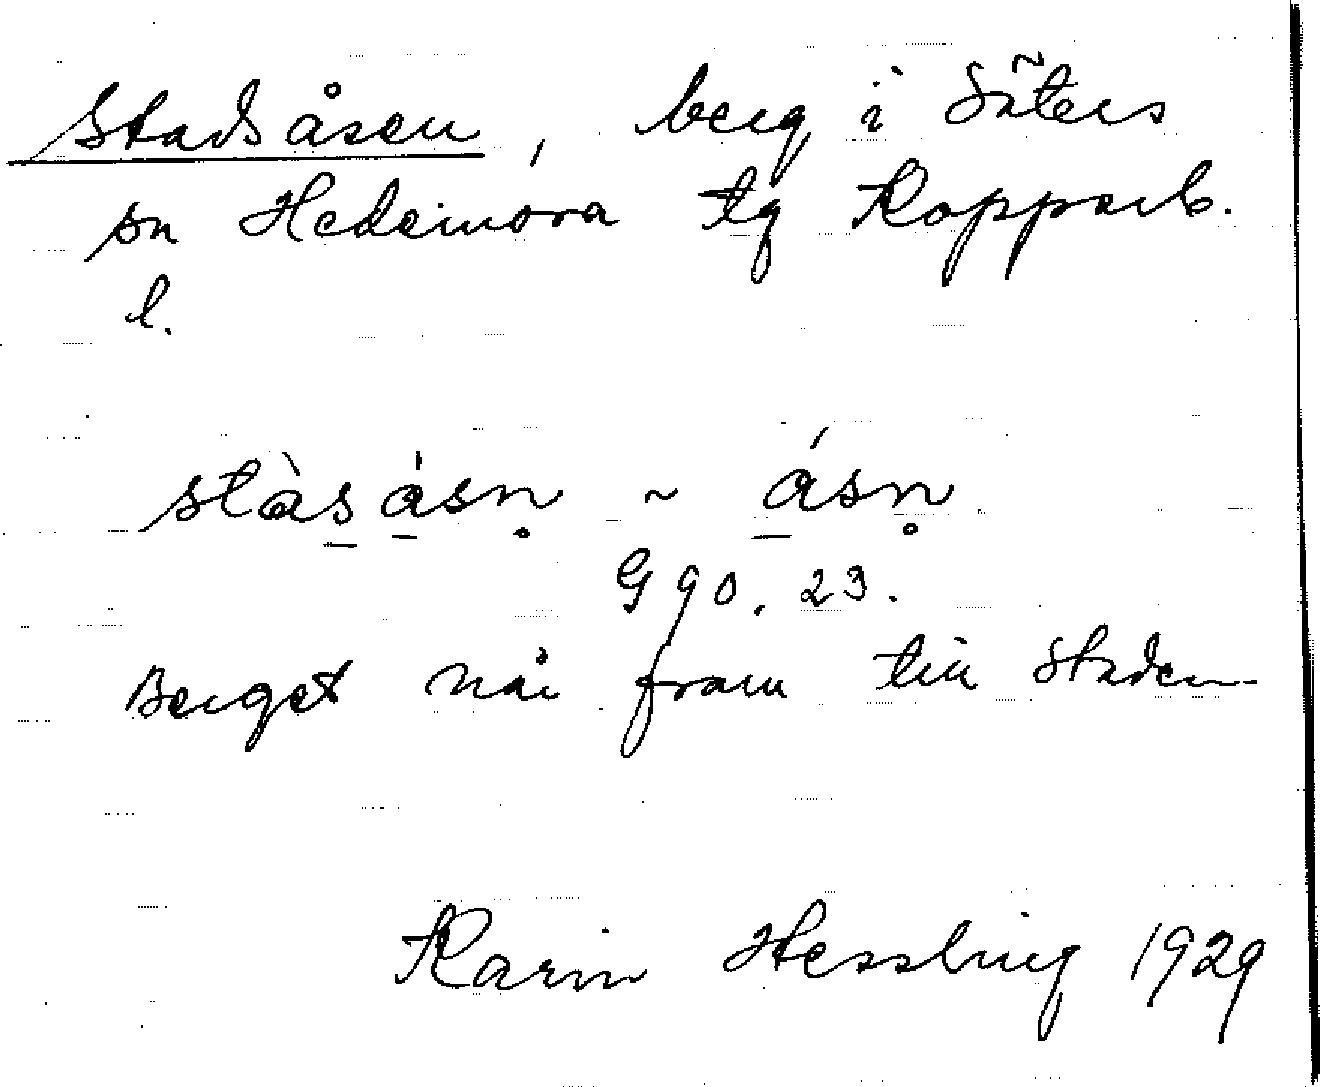 Stadsåsen, berg i Säters
sn Hedemora tg Kopparb.
l.
stàsásn̥ ~ ásn̥
G 90. 23.
Berget når fram till staden
Karin Hessling 1929